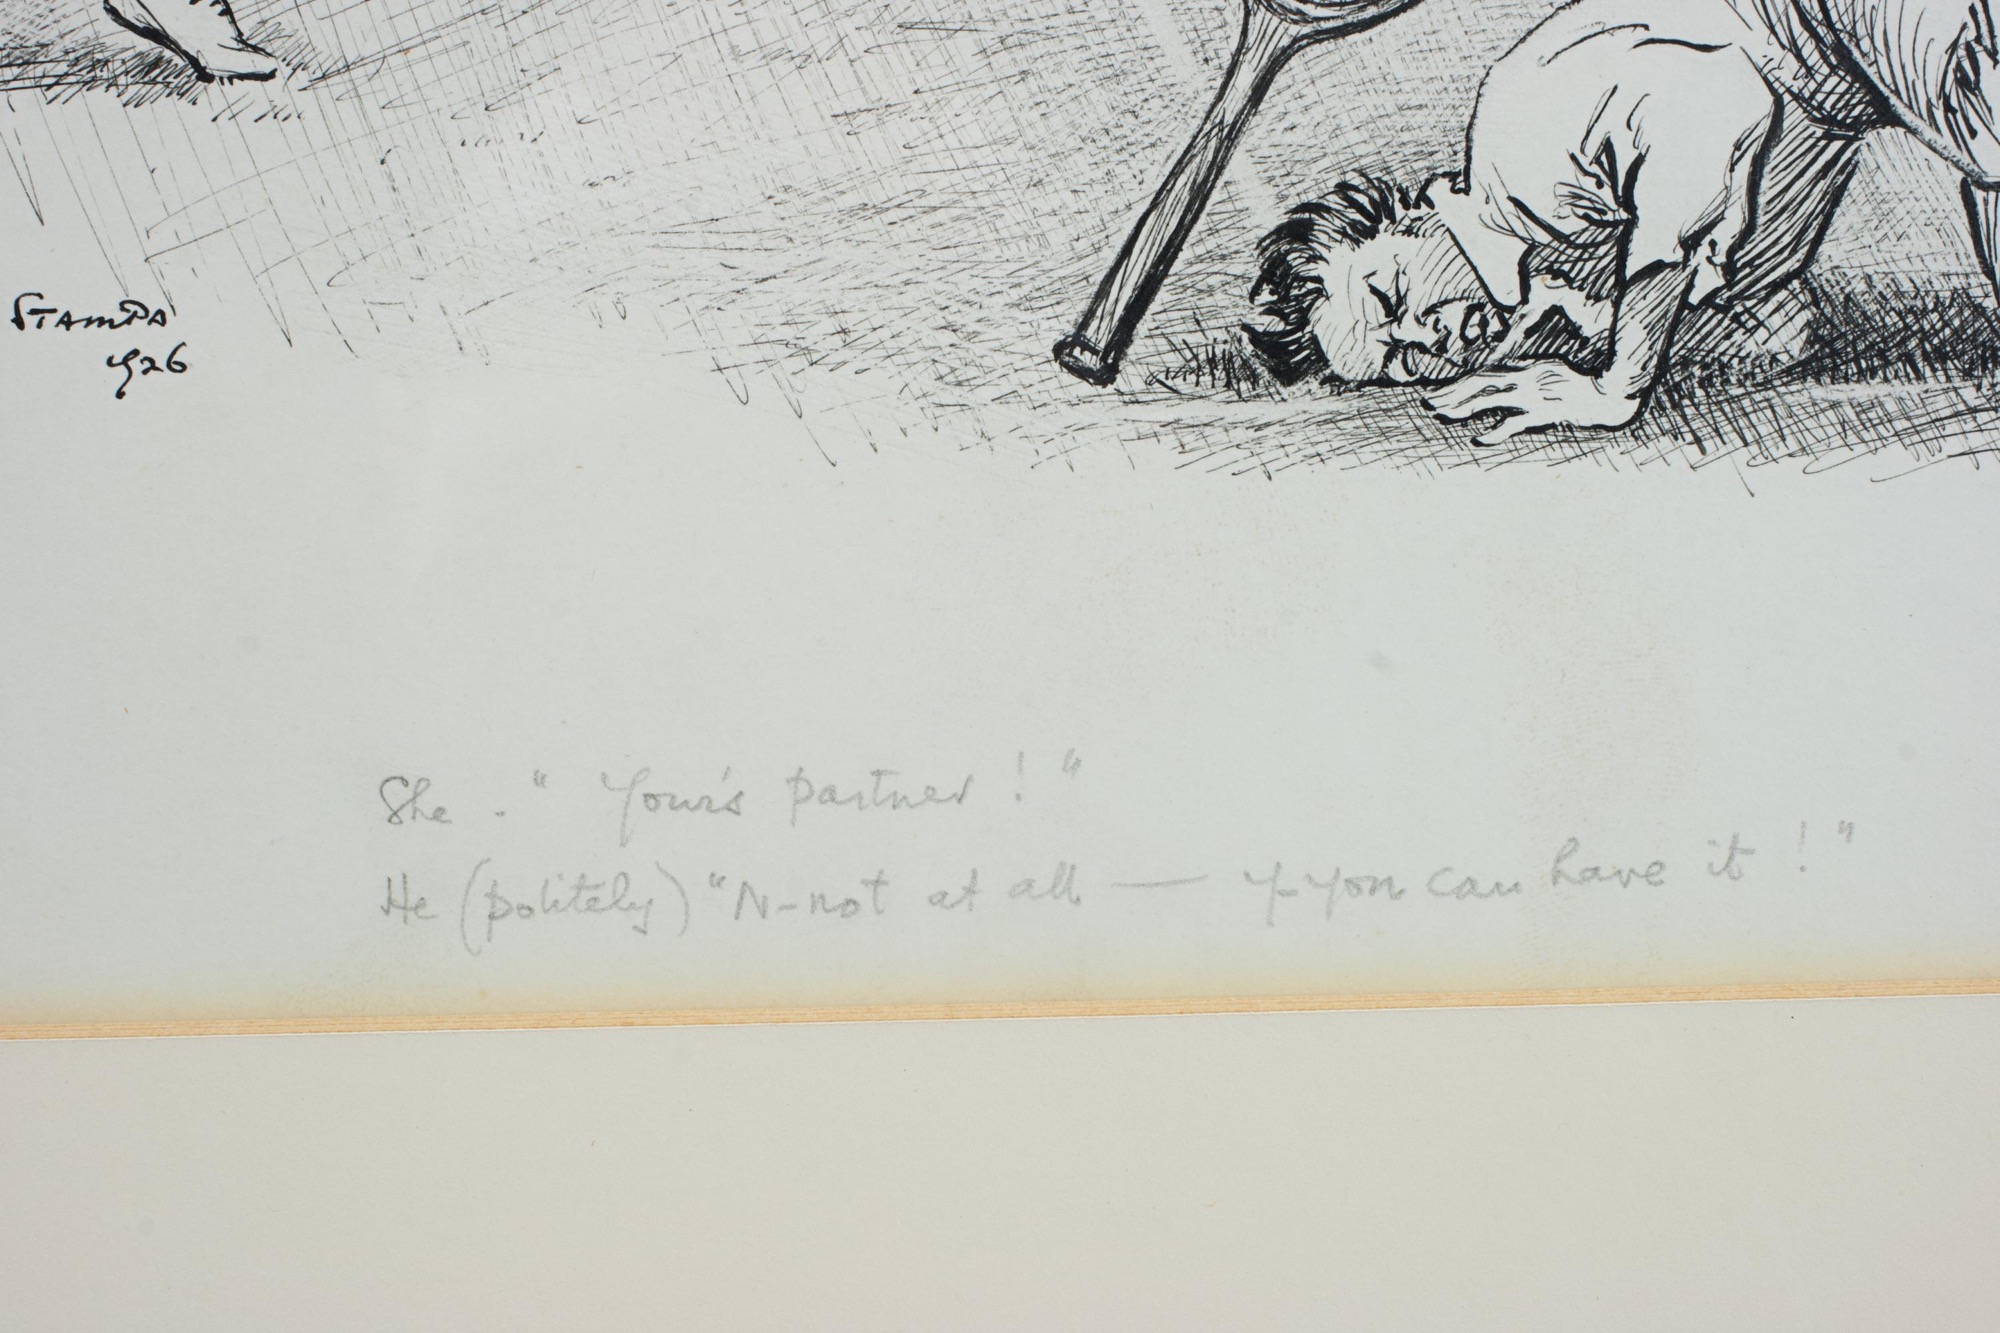 STAMPA
1926
She - " Your's partner ! "
He (politely) "N-not at all — y-you can have it ! "